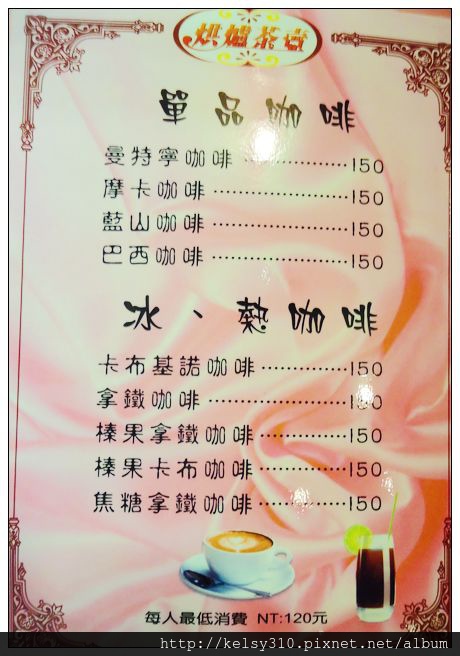 烘爐茶壺
單品咖啡
曼特寧咖啡 ⋯⋯⋯⋯⋯150
摩卡咖啡 ⋯⋯⋯⋯⋯150
藍山咖啡 ⋯⋯⋯⋯⋯150
巴西咖啡 ⋯⋯⋯⋯⋯150
冰、熱咖啡
卡布基諾咖啡 ⋯⋯⋯⋯⋯150
拿鐵咖啡 ⋯⋯⋯⋯⋯150
榛果拿鐵咖啡 ⋯⋯⋯⋯⋯150
榛果卡布咖啡 ⋯⋯⋯⋯⋯150
焦糖拿鐵咖啡 ⋯⋯⋯⋯⋯150
每人最低消費 NT:120元
http://kelsy310.pixnet.net/album